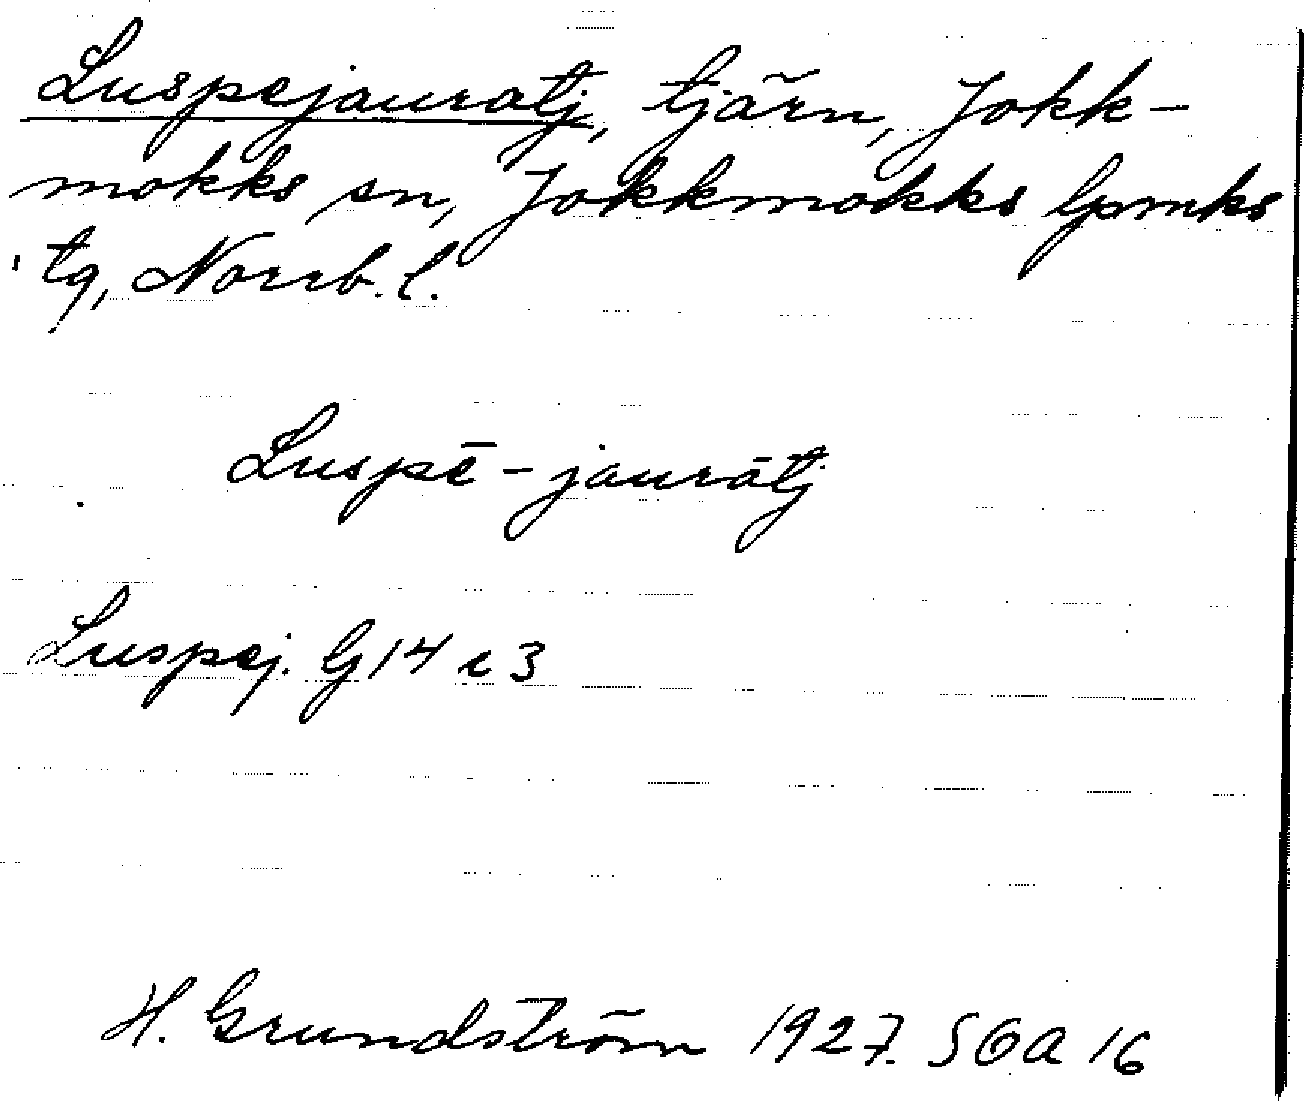 Luspejauratj, tjärn, Jokk-
mokks sn, Jokkmokks lpmks
tg, Norrb. l.
Luspē-jauratj
Luspej. G 14 c 3
H. Grundström 1927. SOA 16